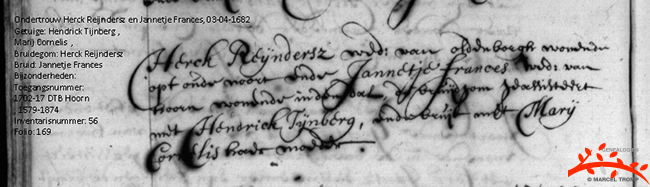 Ondertrouw Herck Reijndersz en Jannetje Frances, 03-04-1682
Getuige: Hendrick Tijnberg ,
Marij Cornelis ,
Bruidegom: Herck Reijndersz
Bruid: Jannetje Frances
Bijzonderheden:
Toegangsnummer:
1702-17 DTB Hoorn
, 1579-1874
Inventarisnummer: 56
Folio: 169
Herck Reijndersz wedr: van oldenborgh wonende
opt onde noort ende Jannetje Frances wed: van
Hoorn wonende inde dal de bruijgom geassisteert
met Hendrick Tijnberg, ende bruijt met Marij
Cornelis haer moeder
GENEALOGIE
© MARCEL TROMP